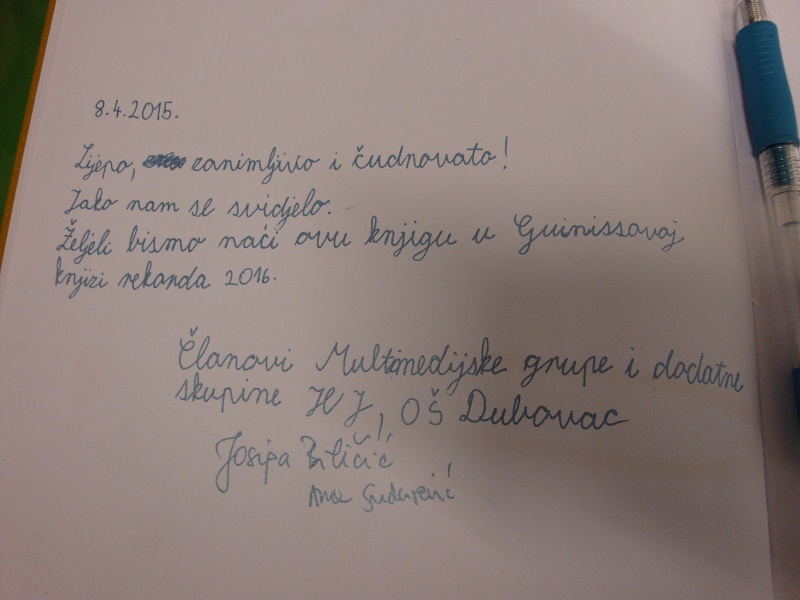 8.4.2015.
Lijepo, zanimljivo i čudnovato!
Jako nam se svidjelo.
Željeli bismo naći ovu knjigu u Guinissovoj
knjizi rekorda 2016.
Članovi Multimedijske grupe i dodatne
skupine HJ, OŠ Dubovac
Josipa Biličić
Ana